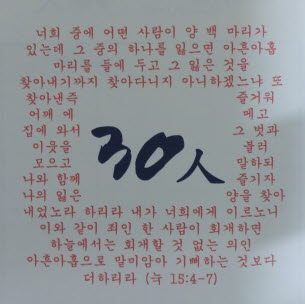 너희 중에 어떤 사람이 양 백 마리가
있는데 그 중의 하나를 잃으면 아흔아홉
마리를 들에 두고 그 잃은 것을
찾아내기까지 찾아다니지 아니하겠느냐 또
찾아낸즉 즐거워
어깨에 메고
집에 와서 그 벗과
이웃을 불러
모으고 말하되
나와 함께 즐기자
나의 잃은 양을 찾아
30人
내었노라 하리라 내가 너희에게 이르노니
이와 같이 죄인 한 사람이 회개하면
하늘에서는 회개할 것 없는 의인
아흔아홉으로 말미암아 기뻐하는 것보다
더하리라 (눅 15:4-7)